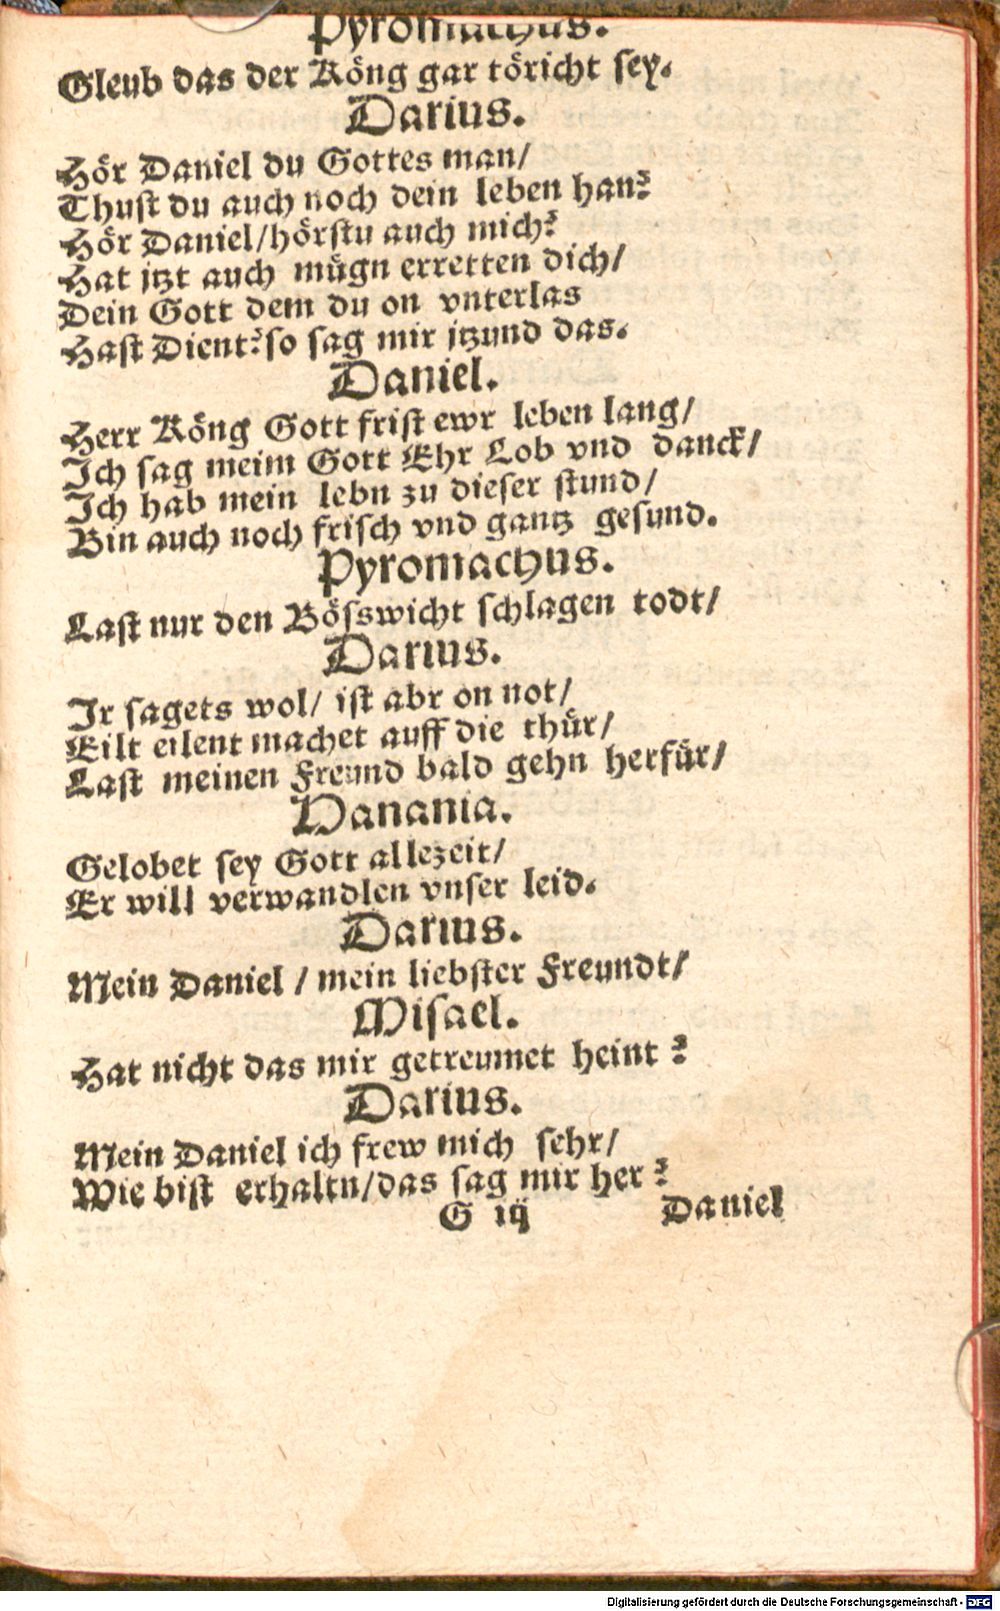 Pyromachus.
Gleub das der Köng gar töricht sey.
Darius.
Hör Daniel du Gottes man/
Thust du auch noch dein leben han?
Hör Daniel/hörstu auch mich?
Hat jtzt auch mügn erretten dich/
Dein Gott dem du on vnterlas
Hast Dient?so sag mir jtzund das.
Daniel.
Herr Köng Gott frist ewr leben lang/
Ich sag meim Gott Ehr Lob vnd danck/
Ich hab mein lebn zu dieser stund/
Bin auch noch frisch vnd gantz gesund.
Pyromachus.
Last nur den Bösswicht schlagen todt/
Darius.
Ir sagets wol/ ist abr on not/
Eilt eilent machet auff die thür/
Last meinen Freund bald gehn herfür/
Hanania.
Gelobet sey Gott allezeit/
Er will verwandlen vnser leid.
Darius.
Mein Daniel / mein liebster Freundt/
Misael.
Hat nicht das mir getreumet heint ?
Darius.
Mein Daniel ich frew mich sehr/
Wie bist erhaltn/das sag mir her ?
G iij Daniel
Digitalisierung gefördert durch die Deutsche Forschungsgemeinschaft - DFG